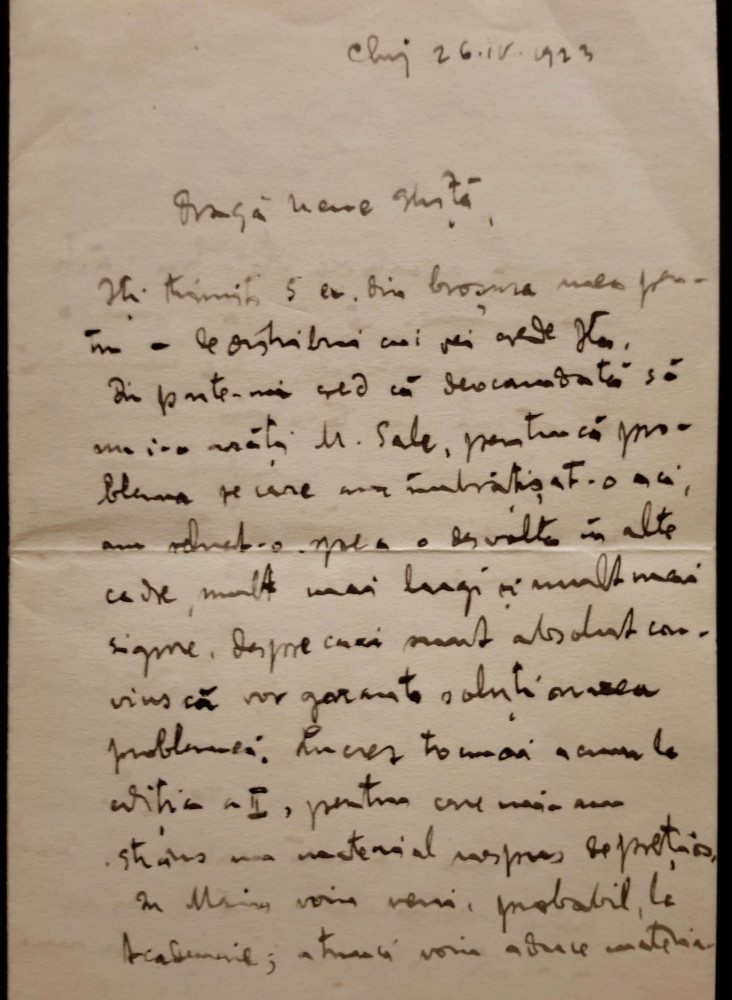 Cluj 26.IV.1923
Dragă nene Ghiță,
Iți trimit 5 ex. din broșura mea pen-
tru a le distribui cui vei crede Dta.
Din parte-mi cred că deocamdată să
nu i-o arăți M. Sale, pentrucă pro-
blema pe care am îmbrățișat-o aci,
am reluat-o spre a o desvolta în alte
cadre, mult mai largi și mult mai
sigure, despre cari sunt absolut con-
vins că vor garanta soluționarea
problemei. Lucrez tocmai acum la
ediția a II, pentru care mi-am
strâns un material nespus de prețios.
In Maiu voiu veni, probabil, la
Academie; atunci voiu aduce materia-